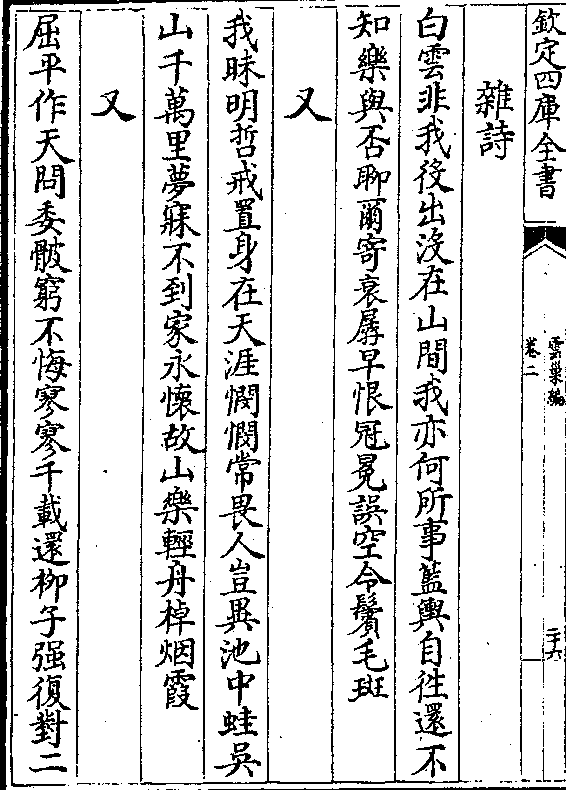 欽定四庫全書
雲巢編
卷二
二十六
雜詩
白雲非我役出没在山間我亦何所事藍輿自往還不
知樂與否聊爾寄衰孱早恨冠冕誤空令鬢毛斑
又
我昧明哲戒置身在天涯憫憫常畏人豈異池中蛙吳
山千萬里夢寐不到家永懷故山樂輕舟棹烟霞
又
屈平作天問委骰窮不悔寥寥千載還栁子强復對二